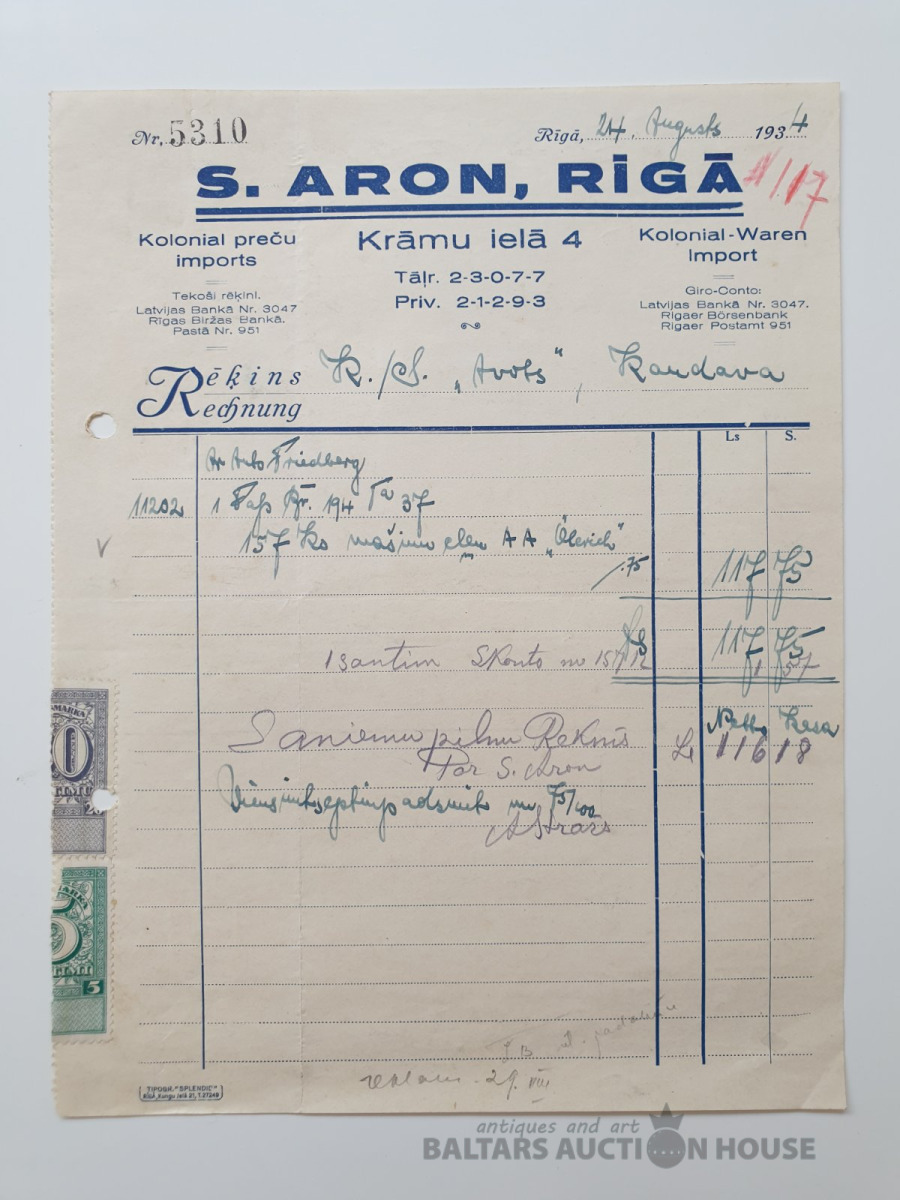 Nr. 5310
Rīgā, 24. Augusts 1934
S. ARON, RĪGĀ
1/117
Kolonial preču
imports
Tekoši rēķini.
Latvijas Bankā Nr. 3047
Rīgas Biržas Bankā.
Pastā Nr. 951
Krāmu ielā 4
Tāļr. 2-3-0-7-7
Priv. 2-1-2-9-3
Kolonial-Waren
Import
Giro-Conto:
Latvijas Bankā Nr. 3047.
Rigaer Börsenbank
Rigaer Postamt 951
Rēķins
Rechnung
K./S. „Avots", Kandava
Ls S.
Ar Auto Friedberg
11202 1 Fass Br. 194 Ta 37
157 Ko mašinu eļļu AA
/.75 117 75
117 75
1 santim Skonto no 157 1 57
Netto Kasa
Saņēmu pilnu
Ls 116 18
Par S. Aron
75/100
MARKA
0
MARKA
5
5
29. VIII
TIPOGR. "SPLENDID"
RĪGĀ, Kungu ielā 21, T. 27249
antiques and art
BALTARS AUCTION HOUSE